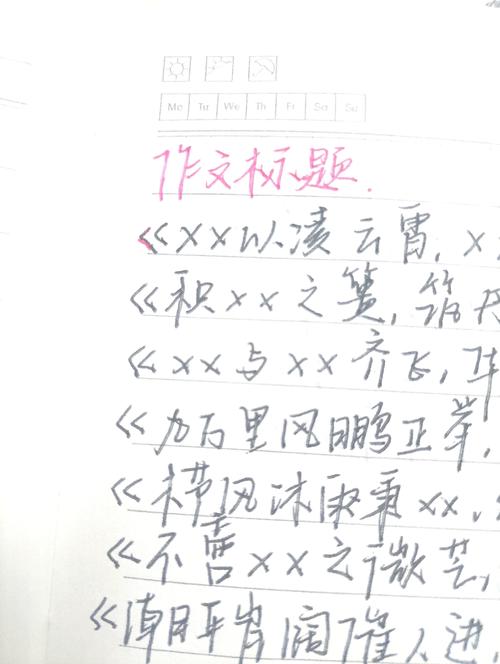 Mo Tu We Th Fr Sa Su
作文标题.
《××以凌云霄,×
《积××之篑,筑
《××与××齐飞,
《九万里风鹏正举,
《栉风沐雨秉××,
《不啬××之微芒,
《潮平岸阔催人进,